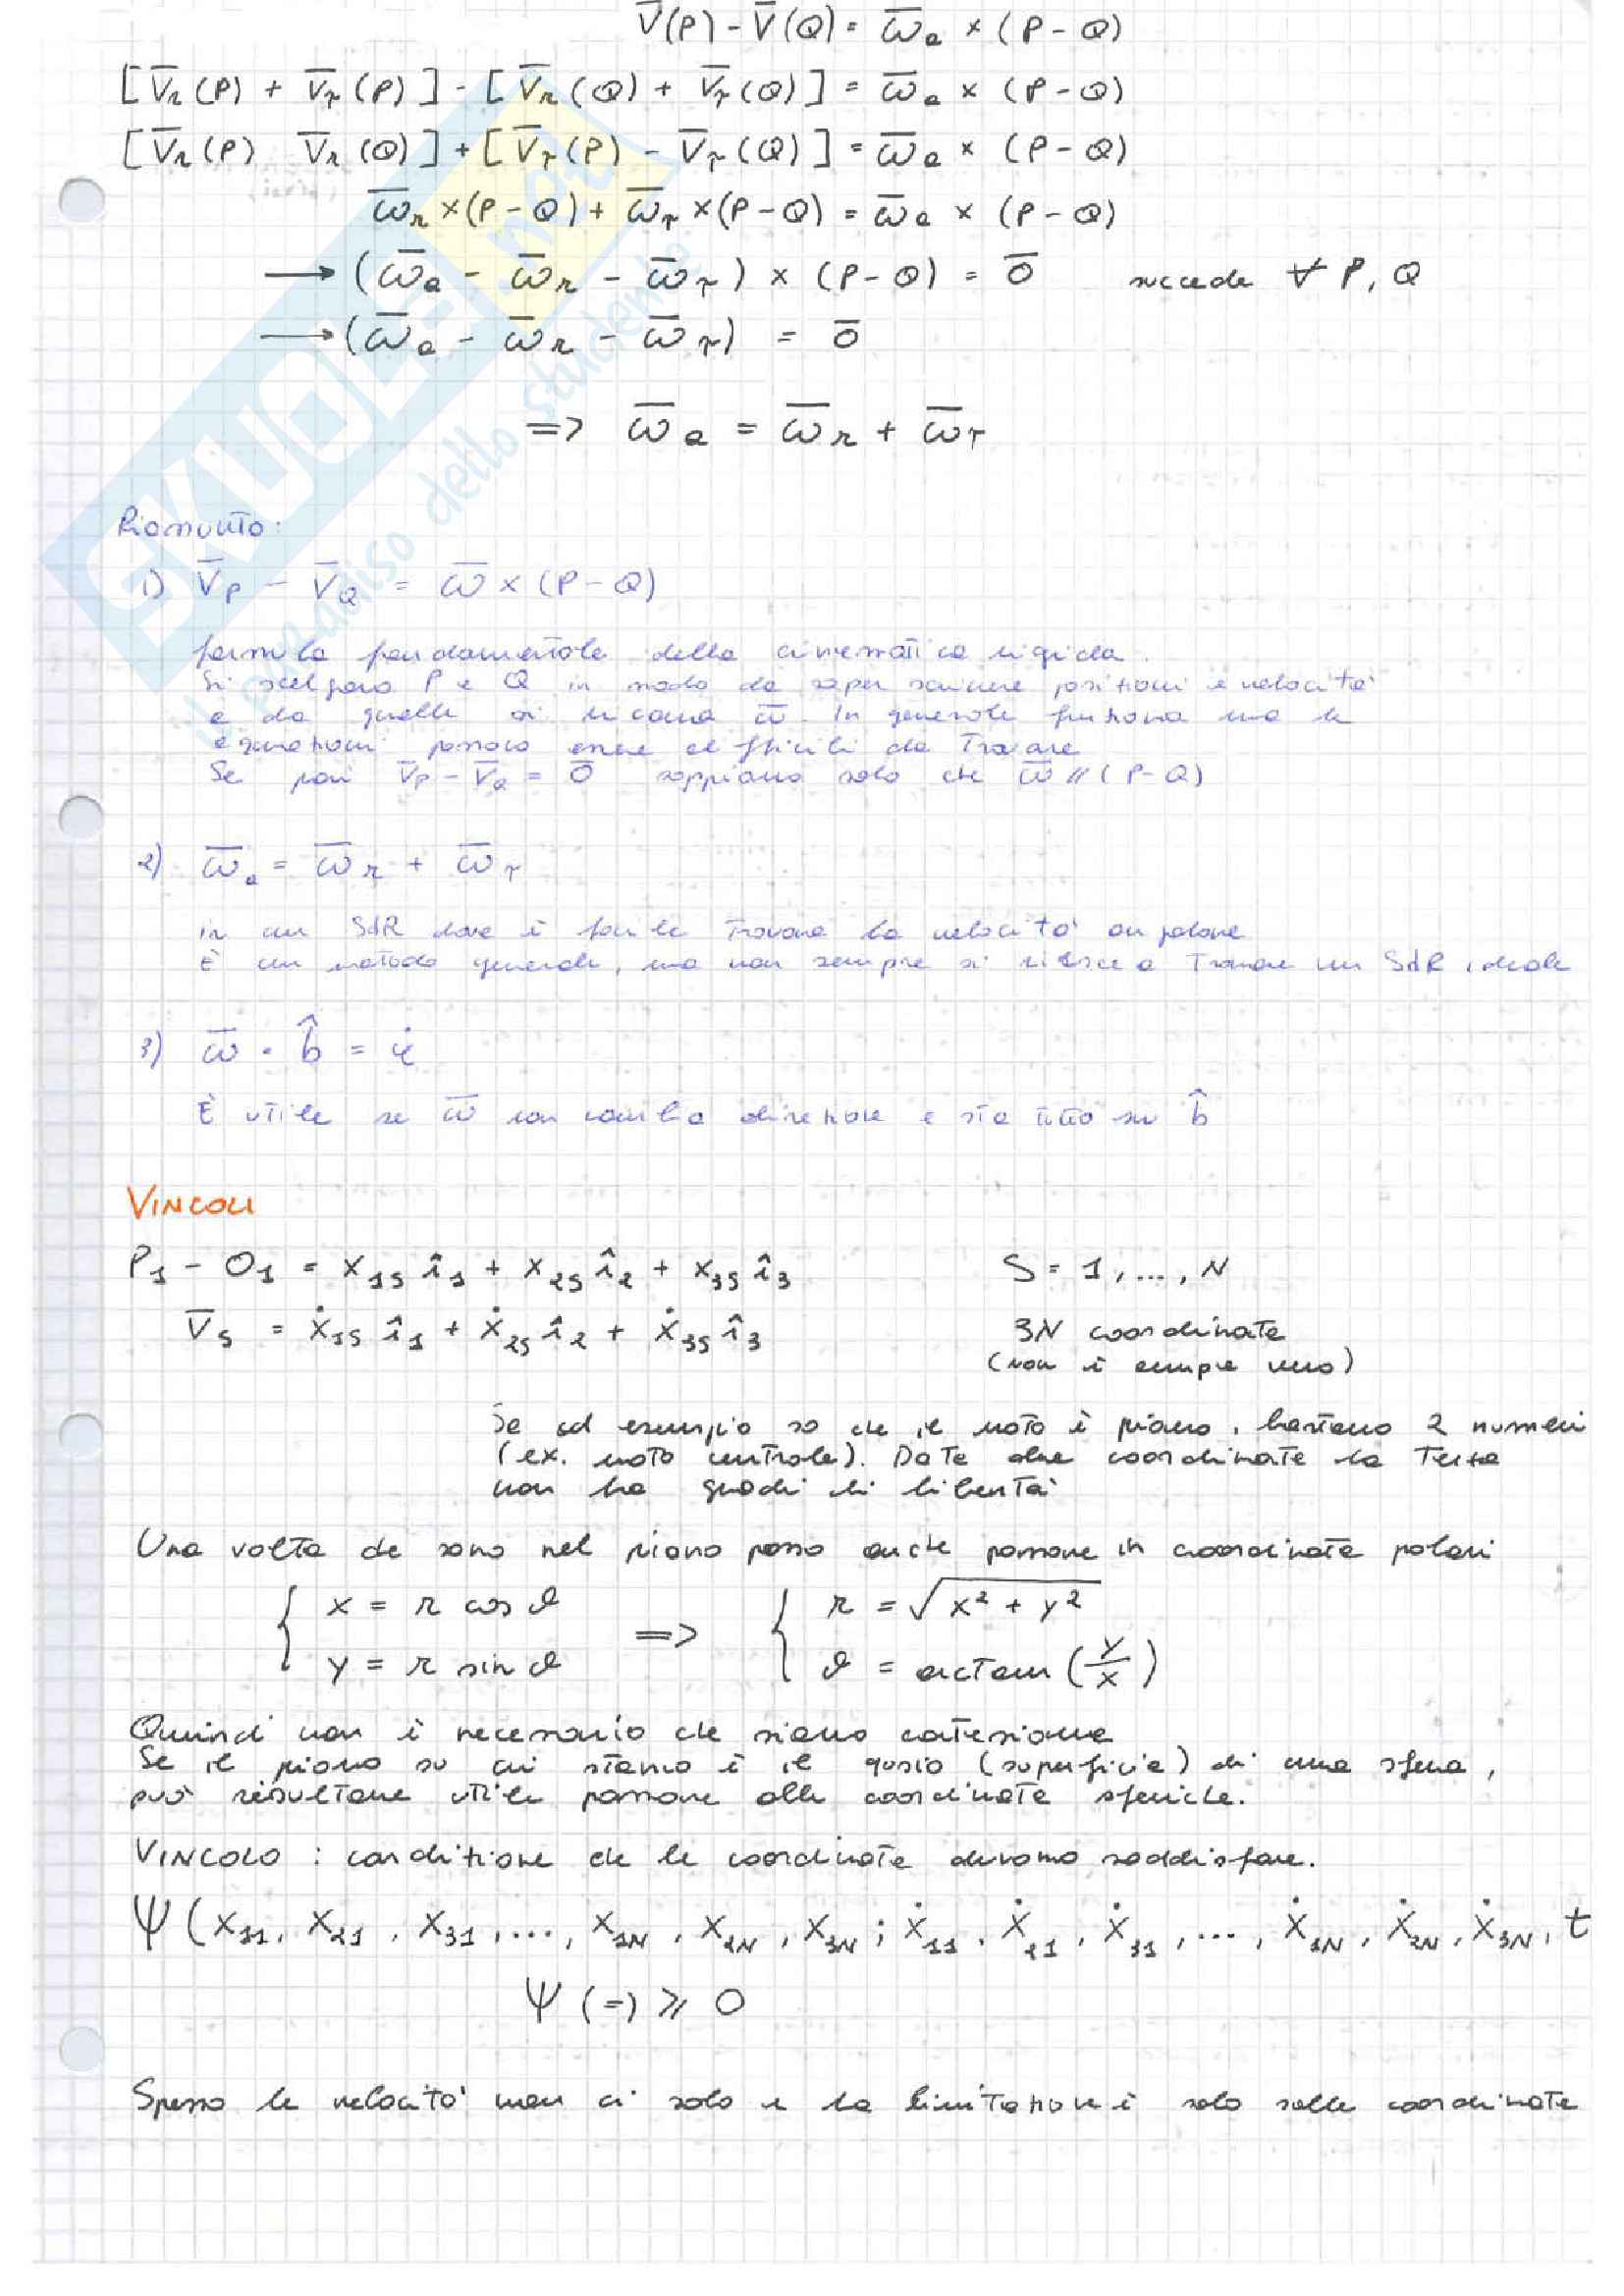 V̅(P) - V̅(Q) = ω̅a × (P - Q)
[V̅r(P) + V̅τ(P)] - [V̅r(Q) + V̅τ(Q)] = ω̅a × (P-Q)
[V̅r(P) V̅r(Q)] + [V̅τ(P) - V̅τ(Q)] = ω̅a × (P-Q)
ω̅r × (P-Q) + ω̅τ × (P-Q) = ω̅a × (P-Q)
→ (ω̅a - ω̅r - ω̅τ) × (P-Q) = 0̅ succede ∀ P, Q
→ (ω̅a - ω̅r - ω̅τ) = 0̅
=> ω̅a = ω̅r + ω̅τ
SKUOLA.net
il paradiso dello studente
Riassunto:
1) V̅P - V̅Q = ω̅ × (P-Q)
formula fondamentale della cinematica rigida.
Si scelgono P e Q in modo da saper scrivere posizioni e velocità
e da quelle si ricava ω̅. In generale funziona ma le
equazioni possono essere difficili da trovare
Se poi V̅P - V̅Q = 0̅ sappiamo solo che ω̅ // (P-Q)
2) ω̅a = ω̅r + ω̅τ
in un SdR dove è facile trovare la velocità angolare
È un metodo generale, ma non sempre si riesce a trovare un SdR ideale
3) ω̅ · b̂ = φ̇
È utile se ω̅ non cambia direzione e sta tutto su b̂
VINCOLI
P1 - O1 = x1S î1 + x2S î2 + x3S î3 S = 1, ..., N
V̅S = ẋ1S î1 + ẋ2S î2 + ẋ3S î3 3N coordinate
(non è sempre vero)
Se ad esempio so che il moto è piano, bastano 2 numeri
(ex. moto centrale). Date due coordinate la terza
non ha gradi di libertà
Una volta che sono nel piano posso anche passare in coordinate polari
{ x = r cos ϑ => { r = √(x² + y²)
{ y = r sin ϑ { ϑ = arctan (y/x)
Quindi non è necessario che siano cartesiane
Se il piano su cui stanno è il guscio (superficie) di una sfera,
può risultare utile passare alle coordinate sferiche.
VINCOLO : condizione che le coordinate devono soddisfare.
Ψ (x11, x21, x31, ..., x1N, x2N, x3N; ẋ11, ẋ21, ẋ31, ..., ẋ1N, ẋ2N, ẋ3N, t
Ψ (=) ⩾ 0
Spesso le velocità non ci solo e la limitazione è solo sulle coordinate